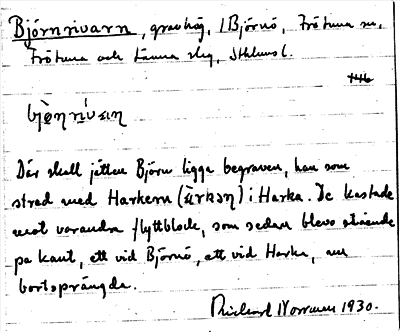 Björnrivarn, gravhög, i Björnö, Frötuna sn,
Frötuna och Länna slg, Sthlms l.
146
Där skall jätten Björn ligga begraven, han som
stred med Harkern (ärkən) i Harka. De kastade
mot varandra flyttblock, som sedan blevo stående
på kant, ett vid Björnö, ett vid Harka, nu
bortsprängda.
Richard Norrman 1930.